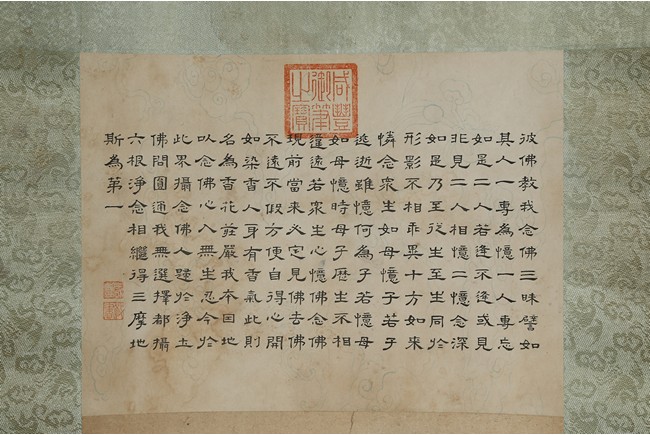 咸豐
御筆
之寶
彼佛教我念佛三昧譬如
其人一專為憶一人專忘
如是二人若逢不逢或見
非見二人相憶二憶念深
如是乃至從生至生同於
形影不相乖異十方如來
憐念眾生如母憶子若子
逃逝雖憶何為子若憶母
如母憶時母子歷生不相
違遠若眾生心憶佛念佛
現前當來必定見佛去佛
不遠不假方便自得心開
如染香人身有香氣此則
名為香光莊嚴我本因地
以念佛心入無生忍今於
此界攝念佛人歸於淨土
佛問圓通我無選擇都攝
六根淨念相繼得三摩地
斯為第一